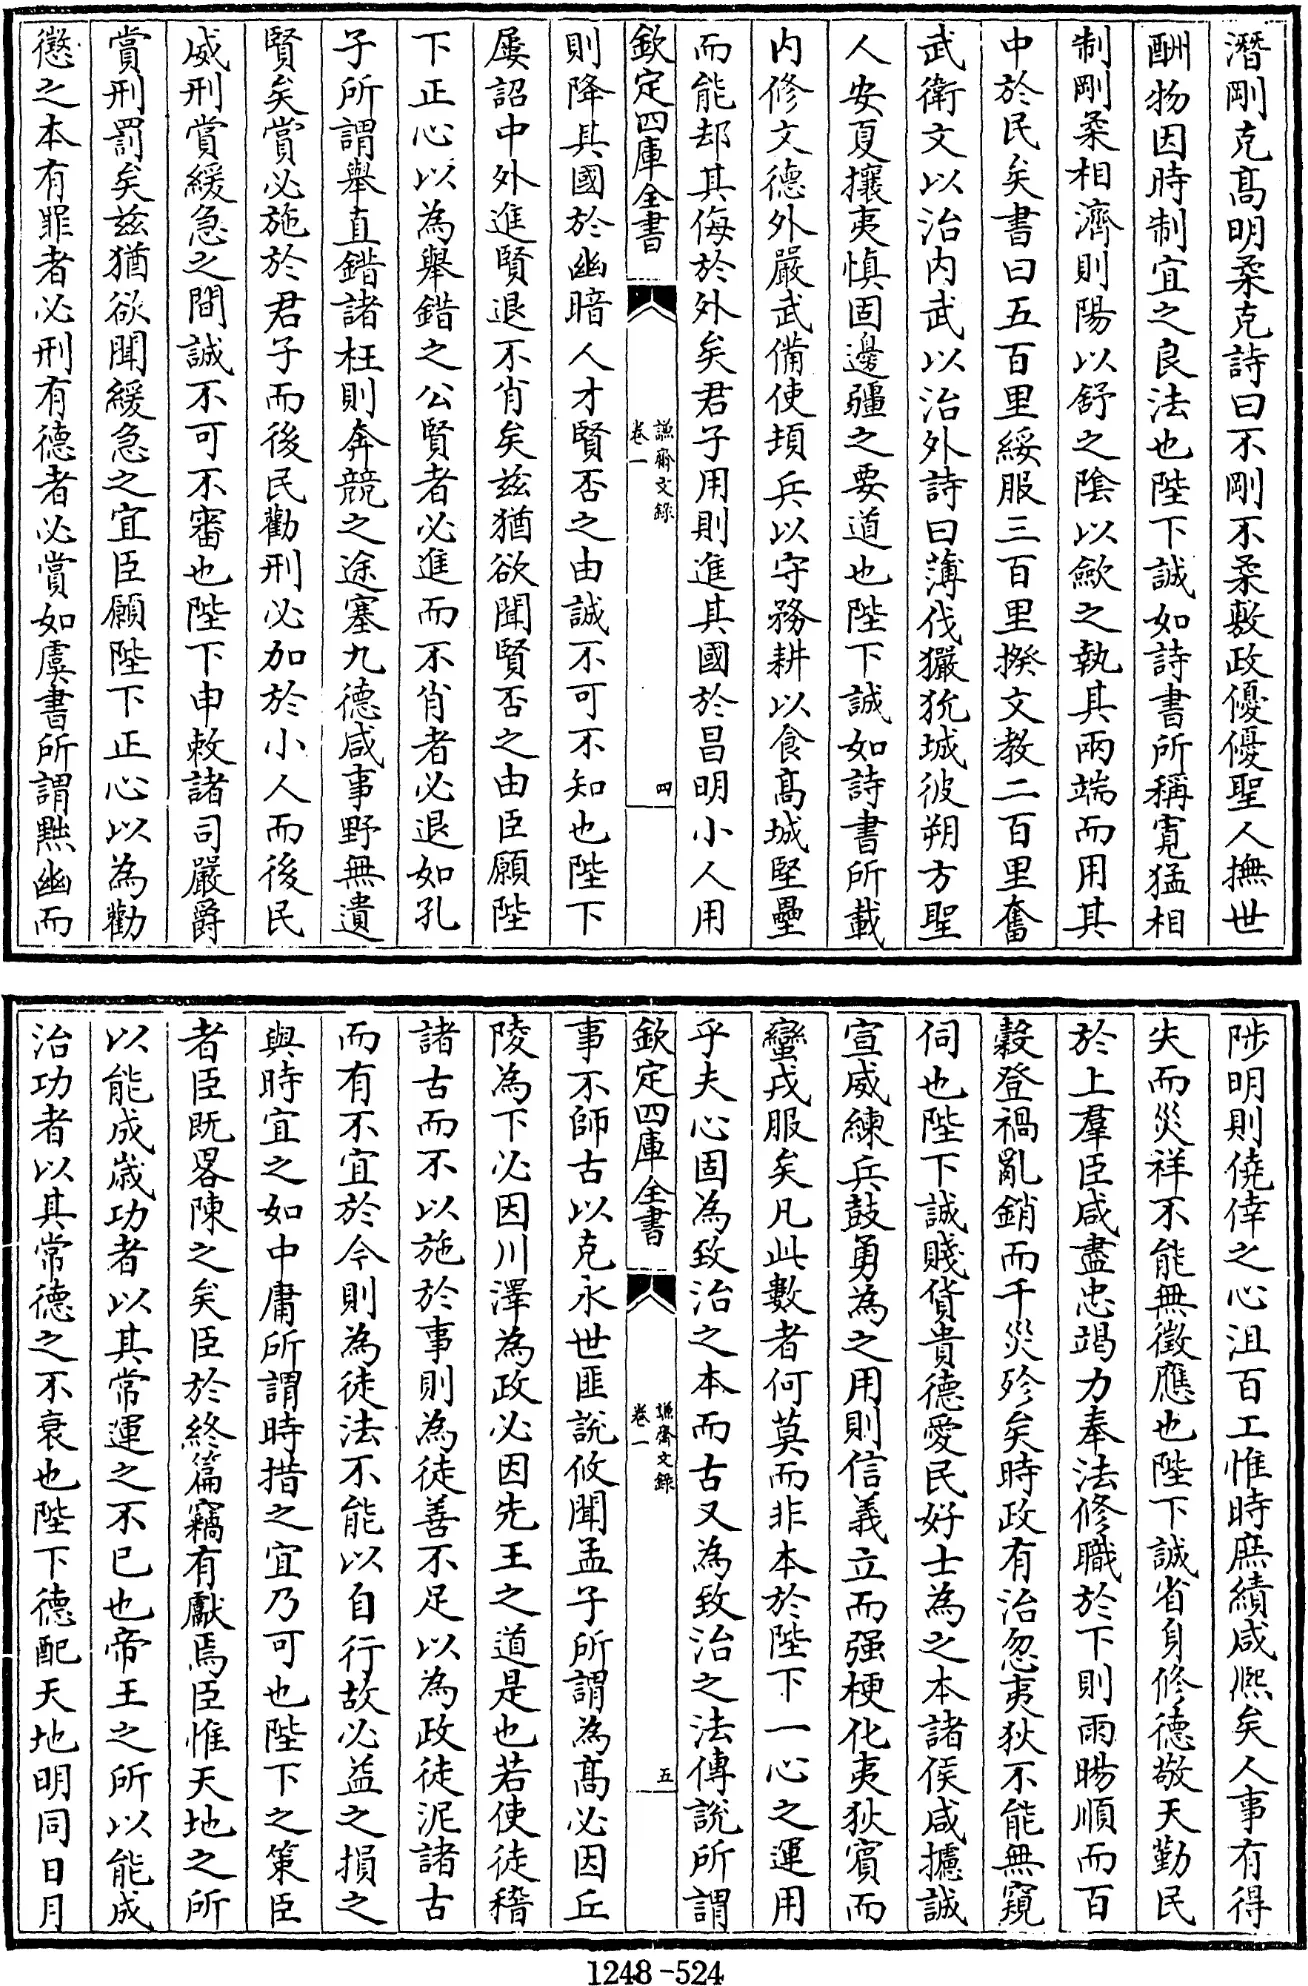 潛剛克髙明柔克詩曰不剛不柔敷政優優聖人撫世
酬物因時制宜之良法也陛下誠如詩書所稱寛猛相
制剛柔相濟則陽以舒之陰以歛之執其兩端而用其
中於民矣書曰五百里綏服三百里揆文教二百里奮
武衛文以治内武以治外詩曰薄伐玁狁城彼朔方聖
人安夏攘夷慎固邊疆之要道也陛下誠如詩書所載
内修文德外嚴武備使頊兵以守務耕以食髙城堅壘
而能却其侮於外矣君子用則進其國於昌明小人用
欽定四庫全書
謙齋文錄
卷一
四
則降其國於幽暗人才賢否之由誠不可不知也陛下
屢詔中外進賢退不肖矣兹猶欲聞賢否之由臣願陛
下正心以為舉錯之公賢者必進而不肖者必退如孔
子所謂舉直錯諸枉則奔競之途塞九德咸事野無遺
賢矣賞必施於君子而後民勸刑必加於小人而後民
威刑賞緩急之間誠不可不審也陛下申敕諸司嚴爵
賞刑罰矣兹猶欲聞緩急之宜臣願陛下正心以為勸
懲之本有罪者必刑有德者必賞如虞書所謂黜幽而
陟明則僥倖之心沮百工惟時庶績咸熙矣人事有得
失而災祥不能無徵應也陛下誠省身修德敬天勤民
於上羣臣咸盡忠竭力奉法修職於下則雨暘順而百
穀登禍亂銷而千災殄矣時政有治忽夷狄不能無窺
伺也陛下誠賤貨貴德愛民好士為之本諸侯咸攄誠
宣威練兵鼓勇為之用則信義立而强梗化夷狄賓而
蠻戎服矣凡此數者何莫而非本於陛下一心之運用
乎夫心固為致治之本而古又為致治之法傳說所謂
欽定四庫全書
謙齋文錄
卷一
五
事不師古以克永世匪說攸聞孟子所謂為髙必因丘
陵為下必因川澤為政必因先王之道是也若使徒稽
諸古而不以施於事則為徒善不足以為政徒泥諸古
而有不宜於今則為徒法不能以自行故必益之損之
與時宜之如中庸所謂時措之宜乃可也陛下之策臣
者臣既畧陳之矣臣於終篇竊有獻焉臣惟天地之所
以能成歳功者以其常運之不已也帝王之所以能成
治功者以其常德之不衰也陛下德配天地明同日月
1248-524